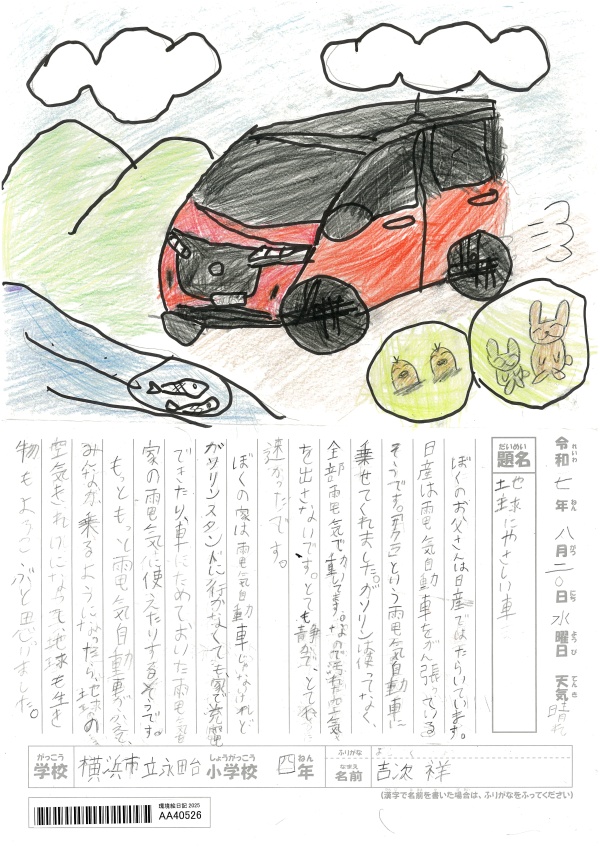 令和 七年 八月 二〇日 水曜日 天気 晴れ
れいわ ねん がつ にち ようび てんき
だいめい
題名
地球にやさしい車
ぼくのお父さんは日産ではたらいています。
日産は雨電気自動車をがん張っている
そうです。「サクラ」という電気自動車に
乗せてくれました。ガソリンは使ってなく、
全部電気で動車してます。なので汚れた空気
を出さないです。とても静かで、とても
速かったです。
ぼくの家は電気自動車じゃないけれど
ガソリンスタンドに行かなくても家で充電
できたり、車にためておいた電気を
家の電気に使えたりするそうです。
もっともっと電気自動車がふえ、
みんなが乗るようになったら、地球の
空気もきれいになって、地球も生き
物もよろこぶと思いました。
がっこう
学校
横浜市立永田台
しょうがっこう
小学校
四年
ねん
ふりがな
なまえ
名前
吉次 祥
(漢字で名前を書いた場合は、ふりがなをふってください)
環境絵日記 2025
AA40526